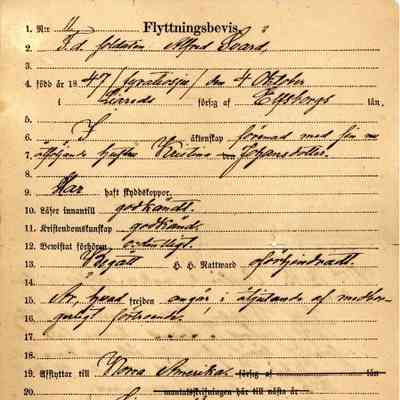 1. N:r 11 Flyttningsbevis.
2. F.d. soldaten Alfred Svärd,
3.
4. född år 1847 /fyratiosju/ den 4 Oktober
i Liareds förs:g af Elfsborgs län,
5.
6. I äktenskap förenad med sin med-
7. följande hustru Kristina Johansdotter.
8.
9. Har haft skyddskoppor.
10. Läser innantill godkändt.
11. Kristendomskunskap godkänd.
12. Bewistat förhören ordentligt.
13. Begått H. H. Nattward oförhindradt.
14.
15. Är, hvad frejden angår, i åtnjutande af medbor-
16. gerligt förtroende.
17.
18.
19. Afflyttar till Norra Amerika. förs:g af län
20. mantalsskrifningen här till nästa år